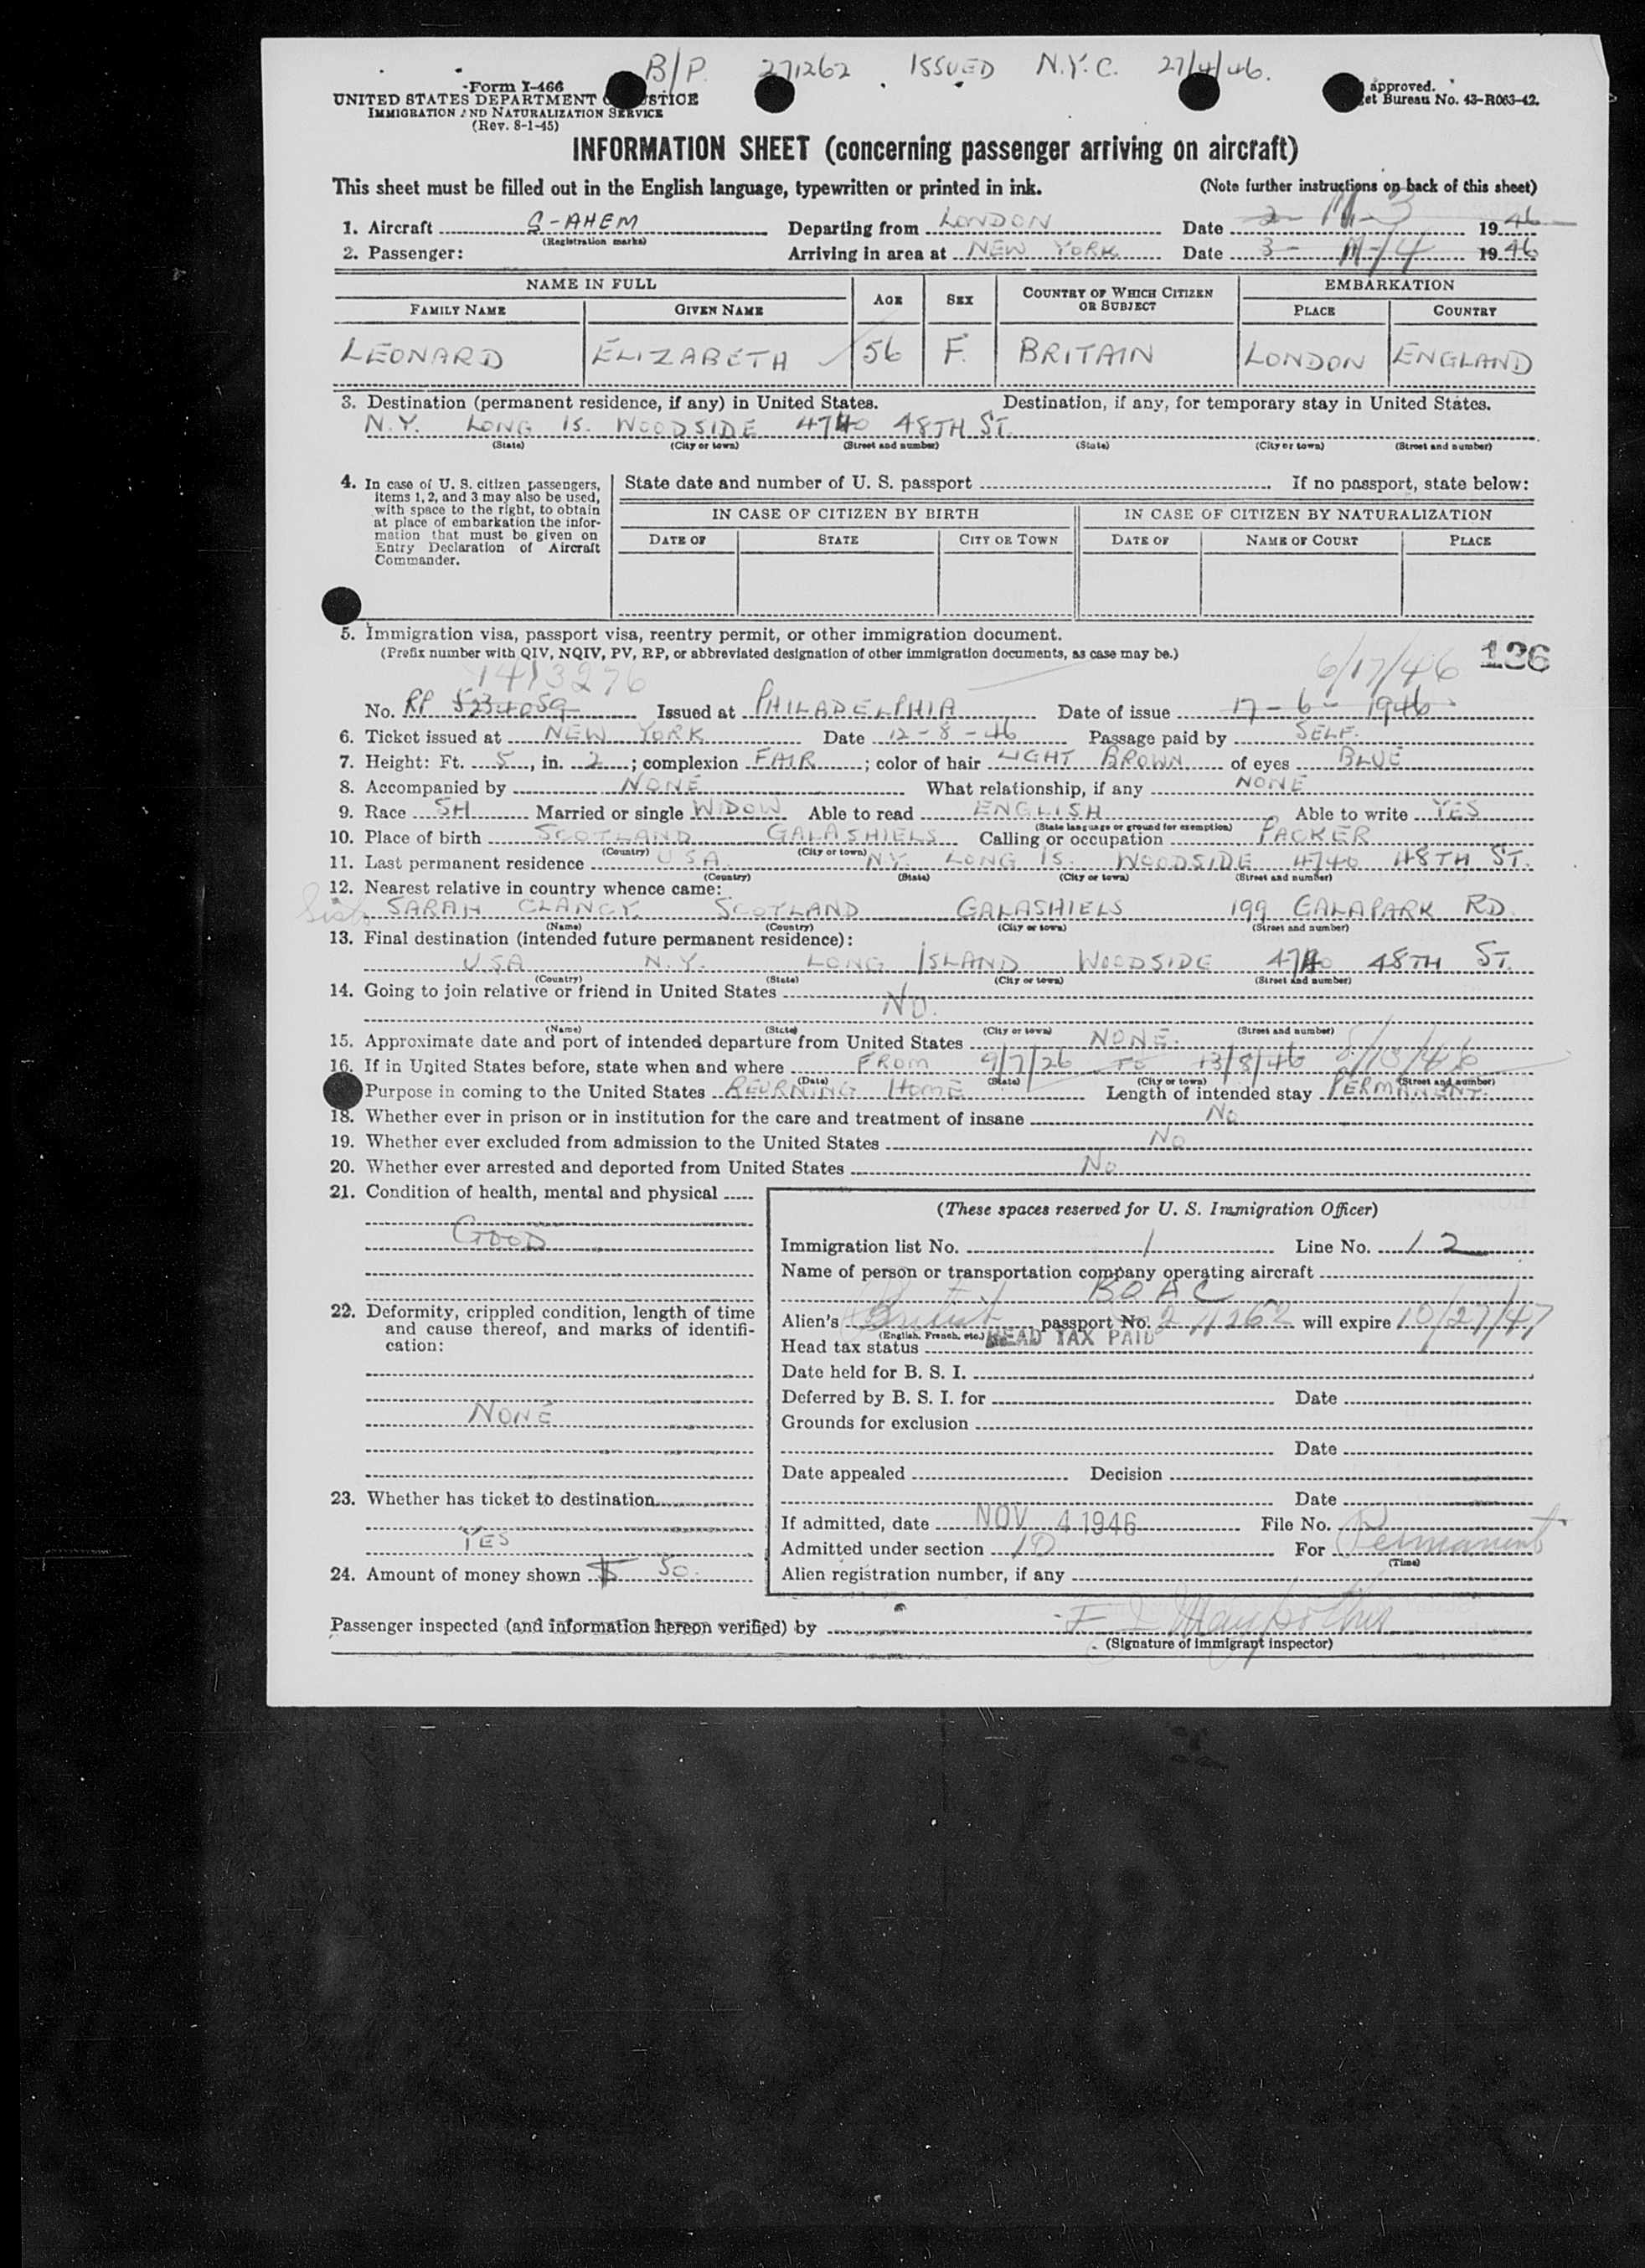 B/P. 271262 . ISSUED N.Y.C. 27/4/46.
Form I-466
UNITED STATES DEPARTMENT STICE
IMMIGRATION AND NATURALIZATION SERVICE
(Rev. 8-1-45)
approved.
et Bureau No. 43-R063-42.
INFORMATION SHEET (concerning passenger arriving on aircraft)
This sheet must be filled out in the English language, typewritten or printed in ink. (Note further instructions on back of this sheet)
1. Aircraft G-AHEM Departing from LONDON Date 2- 11-3 1946
(Registration marks)
2. Passenger: Arriving in area at NEW YORK Date 3- 11-4 1946
NAME IN FULL AGE SEX COUNTRY OF WHICH CITIZEN OR SUBJECT EMBARKATION
FAMILY NAME GIVEN NAME PLACE COUNTRY
LEONARD ELIZABETH 56 F. BRITAIN LONDON ENGLAND
3. Destination (permanent residence, if any) in United States. Destination, if any, for temporary stay in United States.
N.Y. LONG IS. WOODSIDE 4740 48TH ST.
(State) (City or town) (Street and number) (State) (City or town) (Street and number)
4. In case of U. S. citizen passengers, items 1, 2, and 3 may also be used, with space to the right, to obtain at place of embarkation the information that must be given on Entry Declaration of Aircraft Commander.
State date and number of U. S. passport If no passport, state below:
IN CASE OF CITIZEN BY BIRTH IN CASE OF CITIZEN BY NATURALIZATION
DATE OF STATE CITY OR TOWN DATE OF NAME OF COURT PLACE
5. Immigration visa, passport visa, reentry permit, or other immigration document.
(Prefix number with QIV, NQIV, PV, RP, or abbreviated designation of other immigration documents, as case may be.)
1413276 6/17/46 136
No. RP 5234059 Issued at PHILADELPHIA Date of issue 17-6-1946
6. Ticket issued at NEW YORK Date 12-8-46 Passage paid by SELF.
7. Height: Ft. 5, in. 2; complexion FAIR; color of hair LIGHT BROWN of eyes BLUE
8. Accompanied by NONE What relationship, if any NONE
9. Race SH Married or single WIDOW Able to read ENGLISH Able to write YES
(State language or ground for exemption)
10. Place of birth SCOTLAND GALASHIELS Calling or occupation PACKER
(Country) (City or town)
11. Last permanent residence U.S.A. N.Y. LONG IS. WOODSIDE 4740 48TH ST.
(Country) (State) (City or town) (Street and number)
12. Nearest relative in country whence came:
Sist. SARAH CLANCY SCOTLAND GALASHIELS 199 GALAPARK RD.
(Name) (Country) (City or town) (Street and number)
13. Final destination (intended future permanent residence):
U.S.A N.Y. LONG ISLAND WOODSIDE 4740 48TH ST.
(Country) (State) (City or town) (Street and number)
14. Going to join relative or friend in United States
NO.
(Name) (State) (City or town) (Street and number)
15. Approximate date and port of intended departure from United States NONE.
16. If in United States before, state when and where FROM 9/7/26 TO 13/8/46 8/13/46
(Date) (State) (City or town) (Street and number)
Purpose in coming to the United States REURNING HOME Length of intended stay PERMANENT.
18. Whether ever in prison or in institution for the care and treatment of insane No
19. Whether ever excluded from admission to the United States No
20. Whether ever arrested and deported from United States No
21. Condition of health, mental and physical
GOOD
22. Deformity, crippled condition, length of time and cause thereof, and marks of identification:
NONE
23. Whether has ticket to destination
YES
24. Amount of money shown $ 50.
(These spaces reserved for U. S. Immigration Officer)
Immigration list No. 1 Line No. 12
Name of person or transportation company operating aircraft
BOAC
Alien's British passport No. 271262 will expire 10/27/47
(English, French, etc.)
Head tax status HEAD TAX PAID
Date held for B. S. I.
Deferred by B. S. I. for Date
Grounds for exclusion
Date
Date appealed Decision
Date
If admitted, date NOV 4 1946 File No.
Admitted under section 10 For Permanent
(Time)
Alien registration number, if any
Passenger inspected (and information hereon verified) by
(Signature of immigrant inspector)